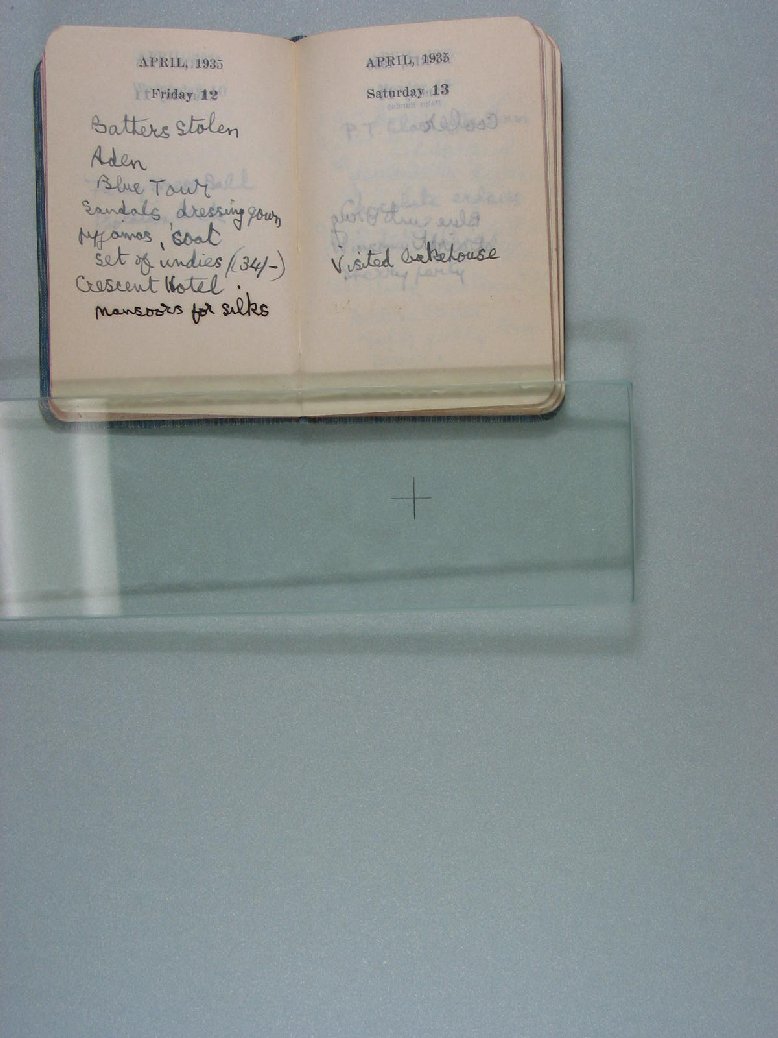 APRIL, 1935
Friday 12
Bathers Stolen
Aden
Blue Tour
Sandals, dressing gown
pyjamas, coat
set of undies (34/-)
Crescent Hotel.
Mansoors for silks
APRIL, 1935
Saturday 13
Visited bakehouse